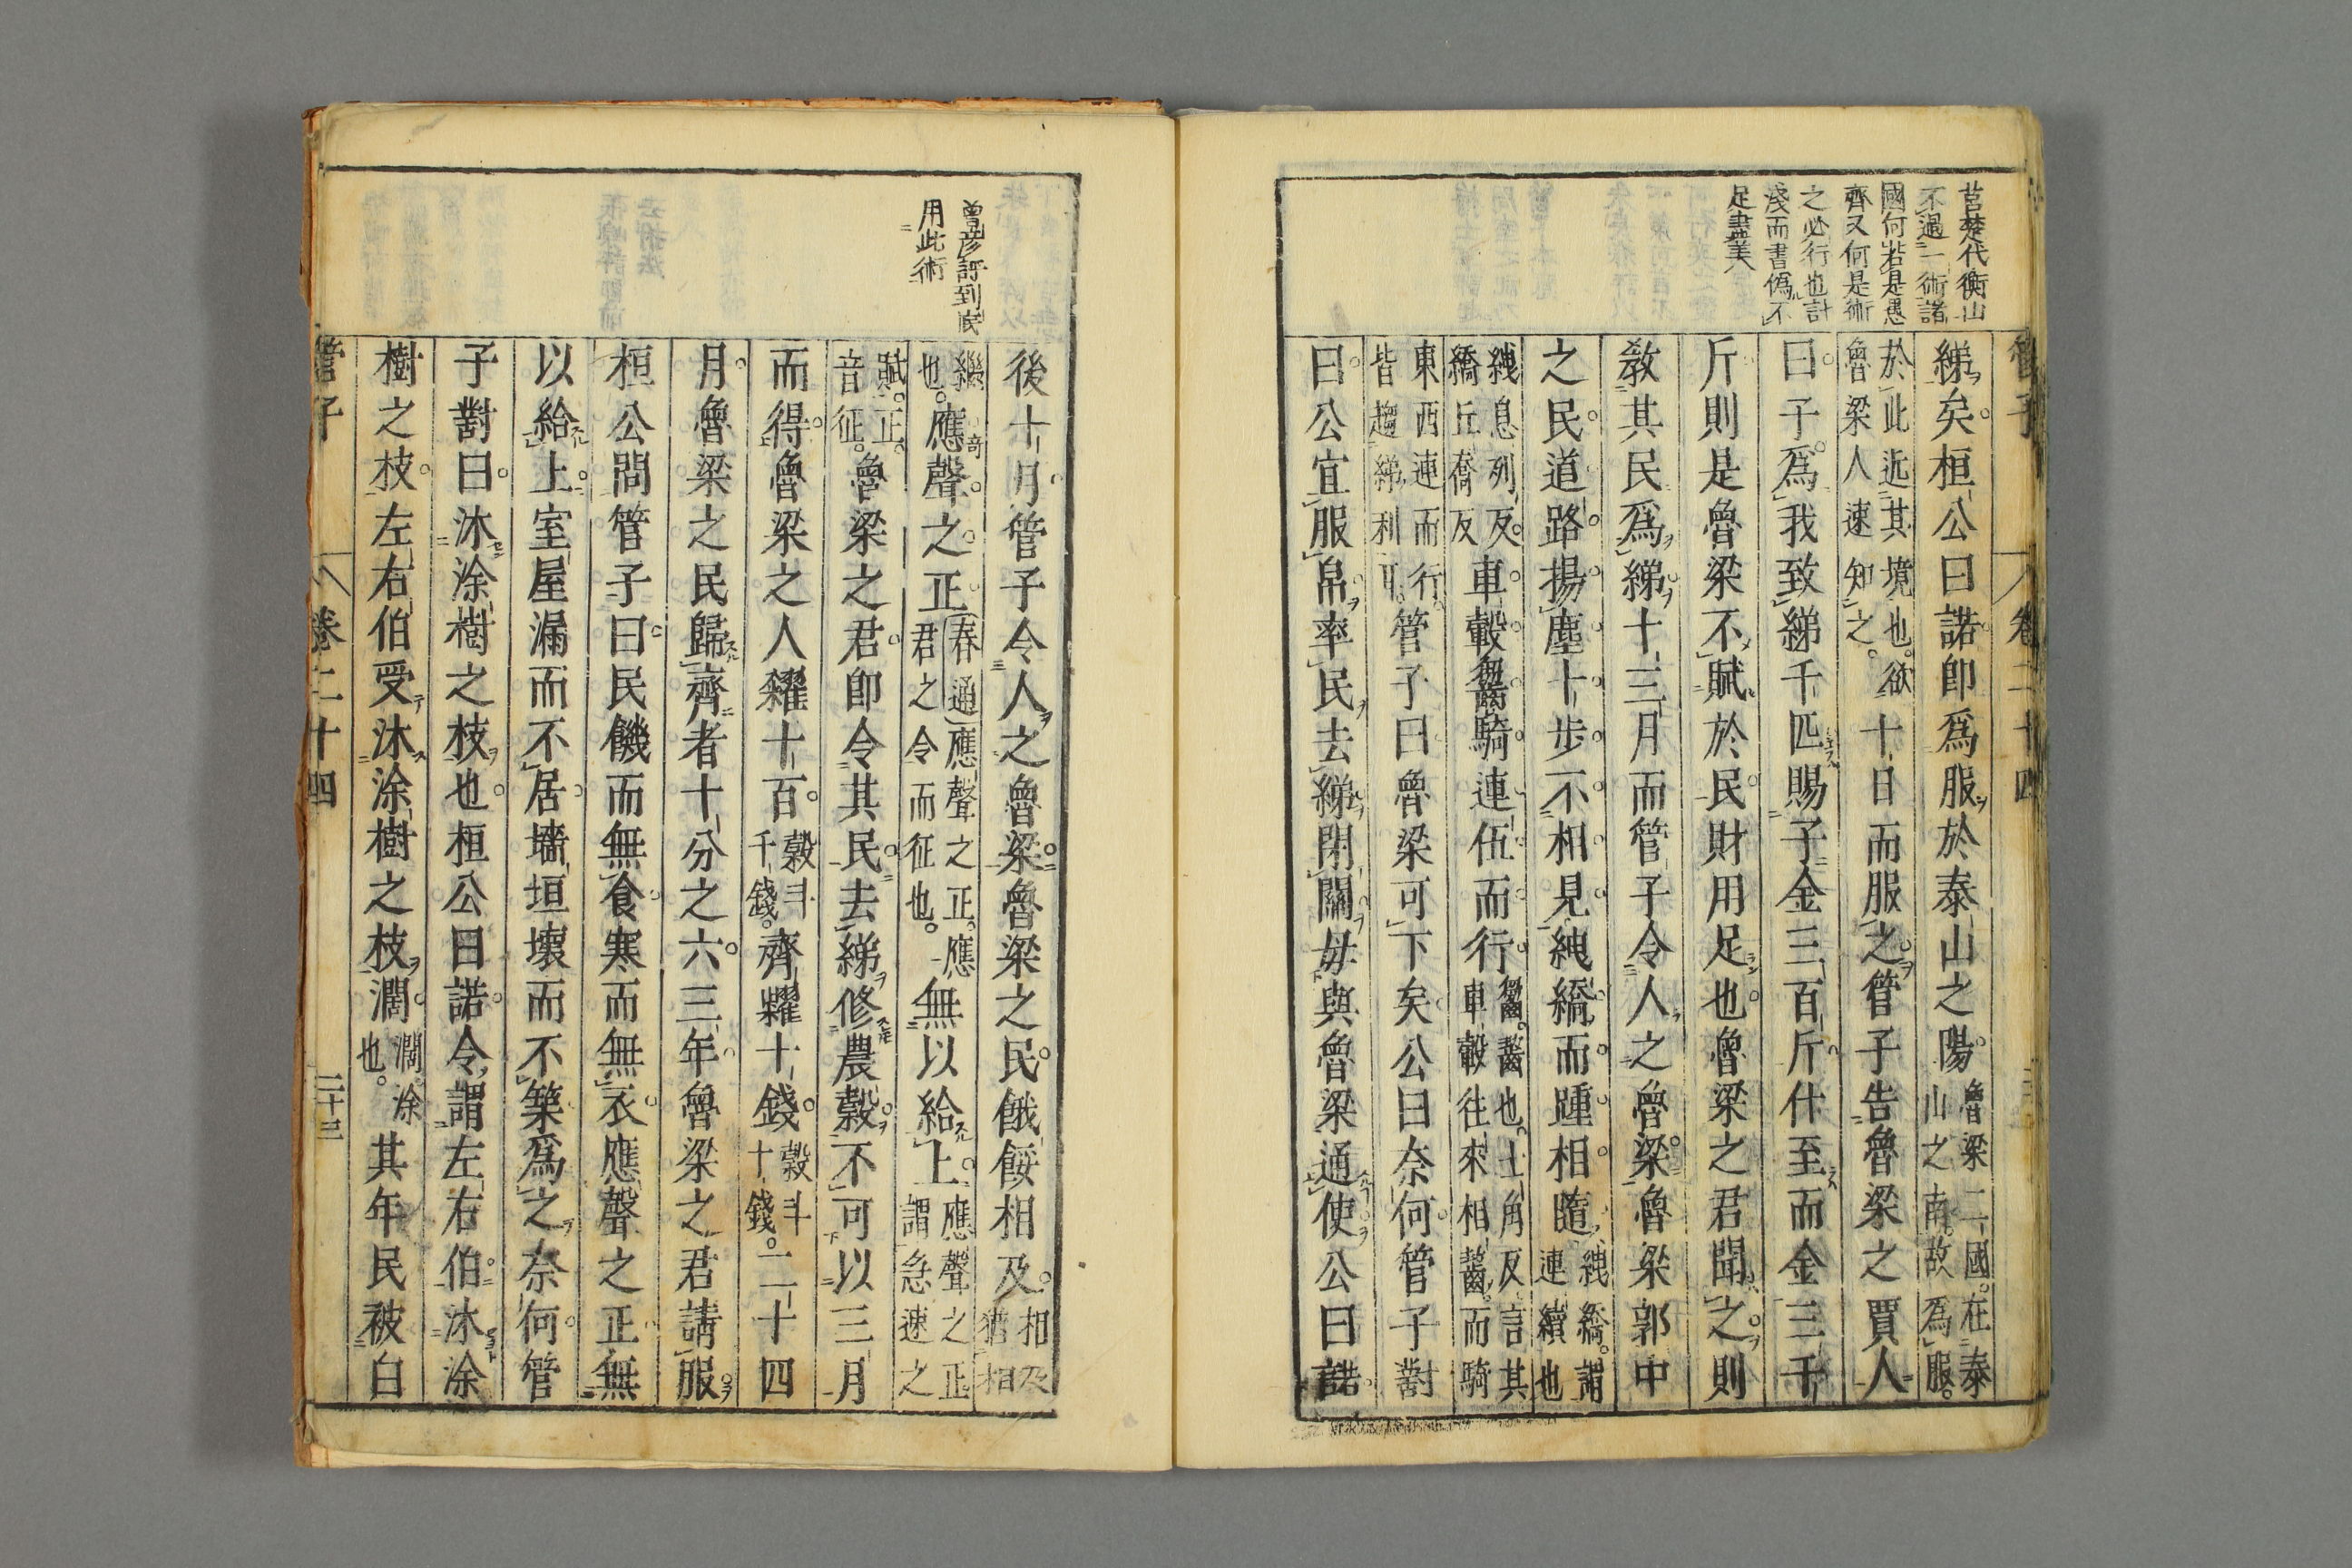 莒楚代衡山
不過一術諸
國何若是愚
齊又何是術
之必行也計
淺而書僞不
足盡美
管子 卷二十四
綈矣桓公曰諾卽爲服於泰山之陽魯梁二國在泰山之南故爲服
於此近其境也欲魯梁人速知之十日而服之管子告魯梁之賈人
曰子爲我致綈千匹賜子金三百斤什至而金三千
斤則是魯梁不賦於民財用足也魯梁之君聞之則
敎其民爲綈十三月而管子令人之魯梁魯梁郭中
之民道路揚塵十步不相見絏繑而踵相隨絏繑謂連續也
絏息列反繑丘喬反車轂齺騎連伍而行齺齧也士角反言其車轂往來相齧而騎
東西連而行皆趨綈利耳管子曰魯梁可下矣公曰奈何管子對
曰公宜服帛率民去綈閉關毋與魯梁通使公曰諾
曾彦評到底
用此術
後十月管子令人之魯梁魯梁之民餓餒相及相及猶相
繼也應聲之正春通應聲之正應君之令而征也無以給上應聲之正謂急速之
賦正音征魯梁之君卽令其民去綈修農穀不可以三月
而得魯梁之人糴十百穀斗千錢齊糶十錢穀斗十錢二十四
月魯梁之民歸齊者十分之六三年魯梁之君請服
桓公問管子曰民饑而無食寒而無衣應聲之正無
以給上室屋漏而不居墻垣壞而不築爲之奈何管
子對曰沐涂樹之枝也桓公曰諾令謂左右伯沐涂
樹之枝左右伯受沐涂樹之枝濶濶涂也其年民被白
管子 卷二十四 二十三